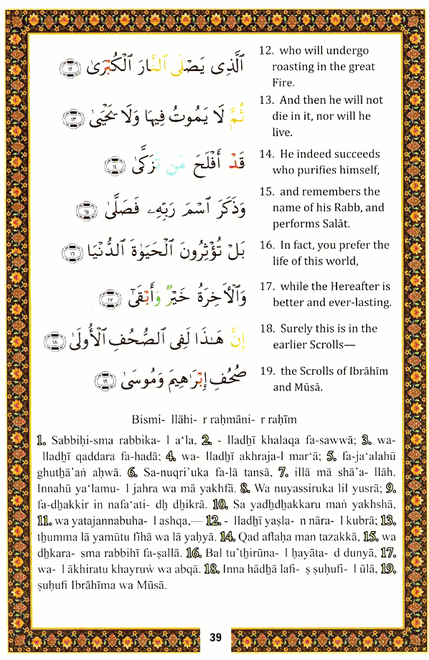 ٱلَّذِى يَصْلَى ٱلنَّارَ ٱلْكُبْرَىٰ ﴿١٢﴾
12. who will undergo
roasting in the great
Fire.
ثُمَّ لَا يَمُوتُ فِيهَا وَلَا يَحْيَىٰ ﴿١٣﴾
13. And then he will not
die in it, nor will he
live.
قَدْ أَفْلَحَ مَن تَزَكَّىٰ ﴿١٤﴾
14. He indeed succeeds
who purifies himself,
وَذَكَرَ ٱسْمَ رَبِّهِۦ فَصَلَّىٰ ﴿١٥﴾
15. and remembers the
name of his Rabb, and
performs Salāt.
بَلْ تُؤْثِرُونَ ٱلْحَيَوٰةَ ٱلدُّنْيَا ﴿١٦﴾
16. In fact, you prefer the
life of this world,
وَٱلْأَخِرَةُ خَيْرٌ وَأَبْقَىٰٓ ﴿١٧﴾
17. while the Hereafter is
better and ever-lasting.
إِنَّ هَـٰذَا لَفِى ٱلصُّحُفِ ٱلْأُولَىٰ ﴿١٨﴾
18. Surely this is in the
earlier Scrolls—
صُحُفِ إِبْرَٰهِيمَ وَمُوسَىٰ ﴿١٩﴾
19. the Scrolls of Ibrāhīm
and Mūsā.
Bismi- llāhi- r raḥmāni- r raḥīm
1. Sabbiḥi-sma rabbika- l a‘la. 2. - lladhī khalaqa fa-sawwā; 3. wa-
lladhī qaddara fa-hadā; 4. wa- lladhī akhraja-l mar‘ā; 5. fa-ja‘alahū
ghuthā’aṅ aḥwā. 6. Sa-nuqri’uka fa-lā tansā, 7. illā mā shā’a- llāh.
Innahū ya‘lamu- l jahra wa mā yakhfā. 8. Wa nuyassiruka lil yusrā; 9.
fa-dhakkir in nafa‘ati- dh dhikrā. 10. Sa yadhdhakkaru maṅ yakhshā,
11. wa yatajannabuha- l ashqa,— 12. - lladhī yaṣla- n nāra- l kubrā; 13.
thumma lā yamūtu fīhā wa lā yaḥyā. 14. Qad aflaḥa man tazakkā, 15. wa
dhkara- sma rabbihī fa-ṣallā. 16. Bal tu’thirūna- l ḥayāta- d dunyā, 17.
wa- l ākhiratu khayruw wa abqā. 18. Inna hādhā lafi- ṣ ṣuḥufi- l ūlā, 19.
ṣuḥufi Ibrāhīma wa Mūsā.
39